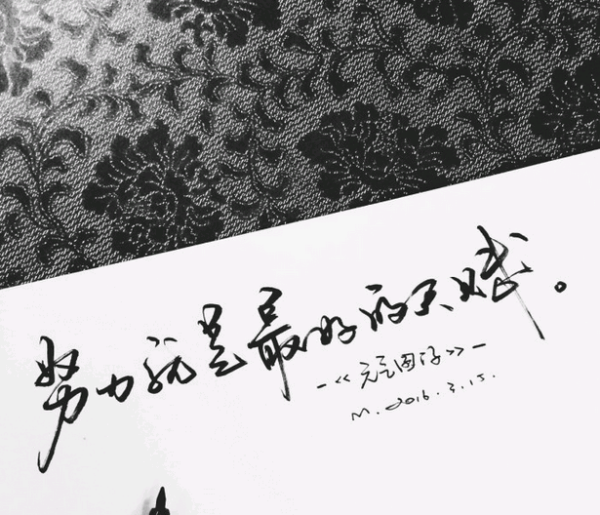 努力就是最好的天赋。
-《元气图语》-
M. 2016.3.15.